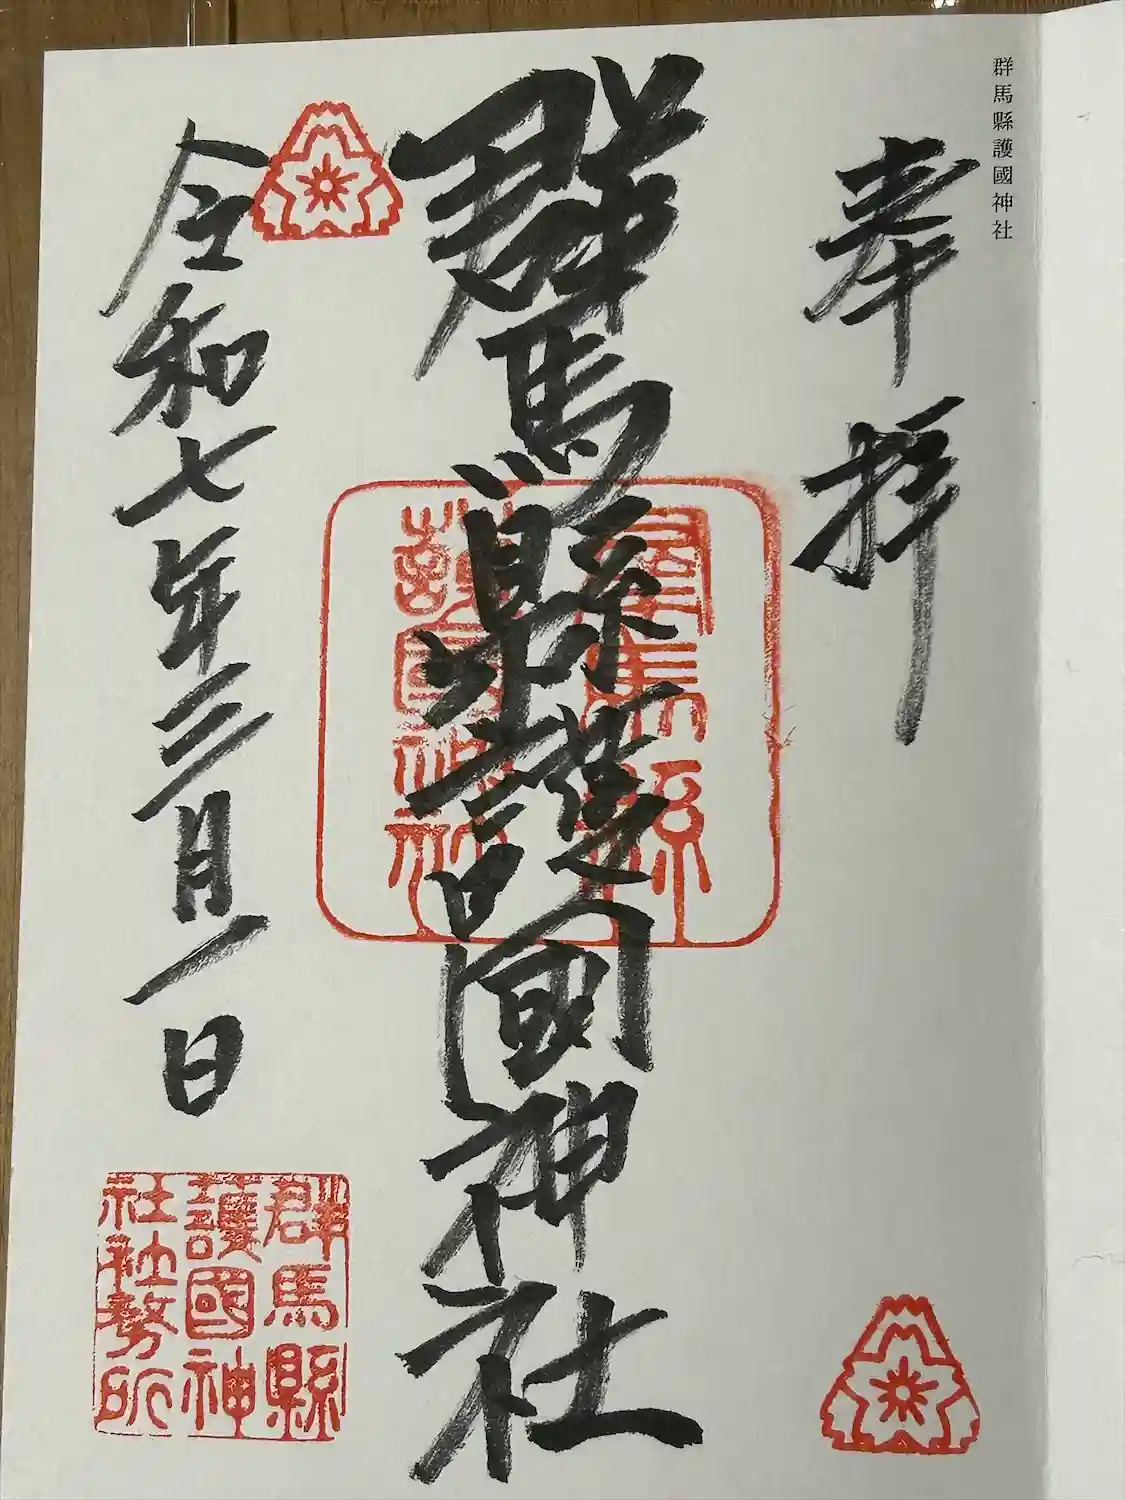 群馬縣護國神社
奉拝
群馬縣護國神社
群馬縣
護國神社
令和七年三月一日
群馬縣
護國神
社社務所